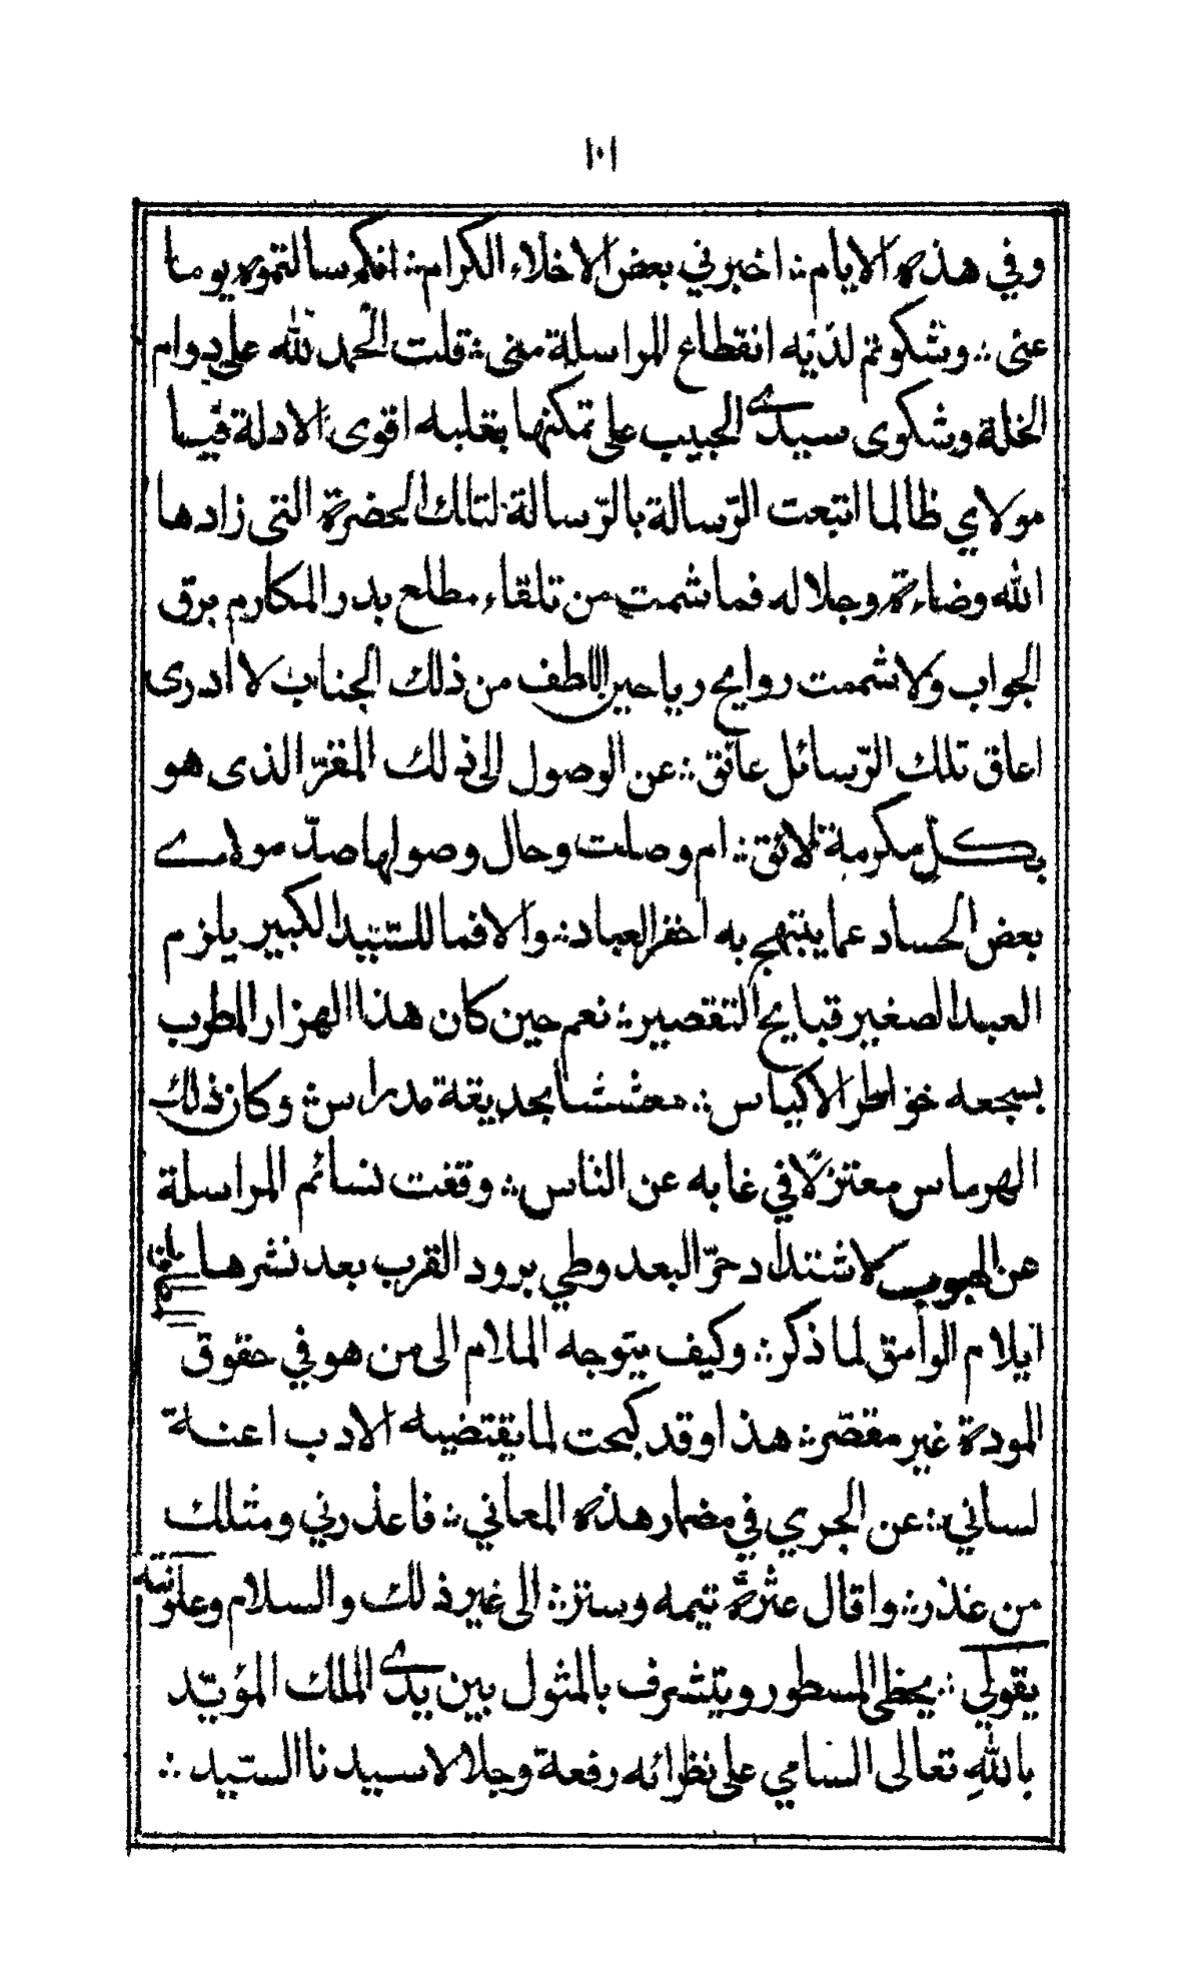 ١٠١
وفي هذه الايام ∴ اخبرني بعض الاخلاء الكرام ∴ انكم سالتموه يوما
عنى ∴ وشكوتم لديه انقطاع المراسلة منى ∴ قلت الحمد لله على دوام
الخلة وشكوى سيدى الحبيب على تمكنها بقلبه اقوى الادلة فيا
مولاي طالما اتبعت الرّسالة بالرّسالة لتلك الحضرة التى زادها
الله وضاءة وجلاله فما شمت من تلقاء مطلع بدر المكارم برق
الجواب ولا شممت روايح رياحين اللطف من ذلك الجناب لا ادرى
اعاق تلك الرّسائل عائق ∴ عن الوصول الى ذلك المقرّ الذى هو
بكلّ مكرمة لائق ∴ ام وصلت وحال وصولها صدّ مولاى
بعض الحساد عما يبتهج به احقر العباد ∴ والا فما للسّيّد الكبير يلزم
العبد الصغير قبايح التقصير ∴ نعم حين كان هذا الهزار المطرب
بسجعه خواطر الاكياس ∴ معششا بحديقة مدراس ∴ وكان ذلك
الهرماس معتزلًا في غابه عن الناس ∴ وقفت نسائم المراسلة
عن الهبوب لاشتداد حرّ البعد وطي برود القرب بعد نشرها
ايلام الوامق لما ذكر ∴ وكيف يتوجه الملام الى من هو في حقوق
المودة غير مقصّر ∴ هذا وقد كبحت لما يقتضيه الادب اعنة
لساني ∴ عن الجري في مضمار هذه المعاني ∴ فاعذرني ومثلك
من عذر ∴ واقال عثرة تيمه وستر ∴ الى غير ذلك والسلام وعلونته
بقولي ∴ يحظى المسطور ويتشرف بالمثول بين يدى الملك المؤيّد
باللهِ تعالى السامي على نظرائه رفعة وجلالا سيدنا السّيد ∴